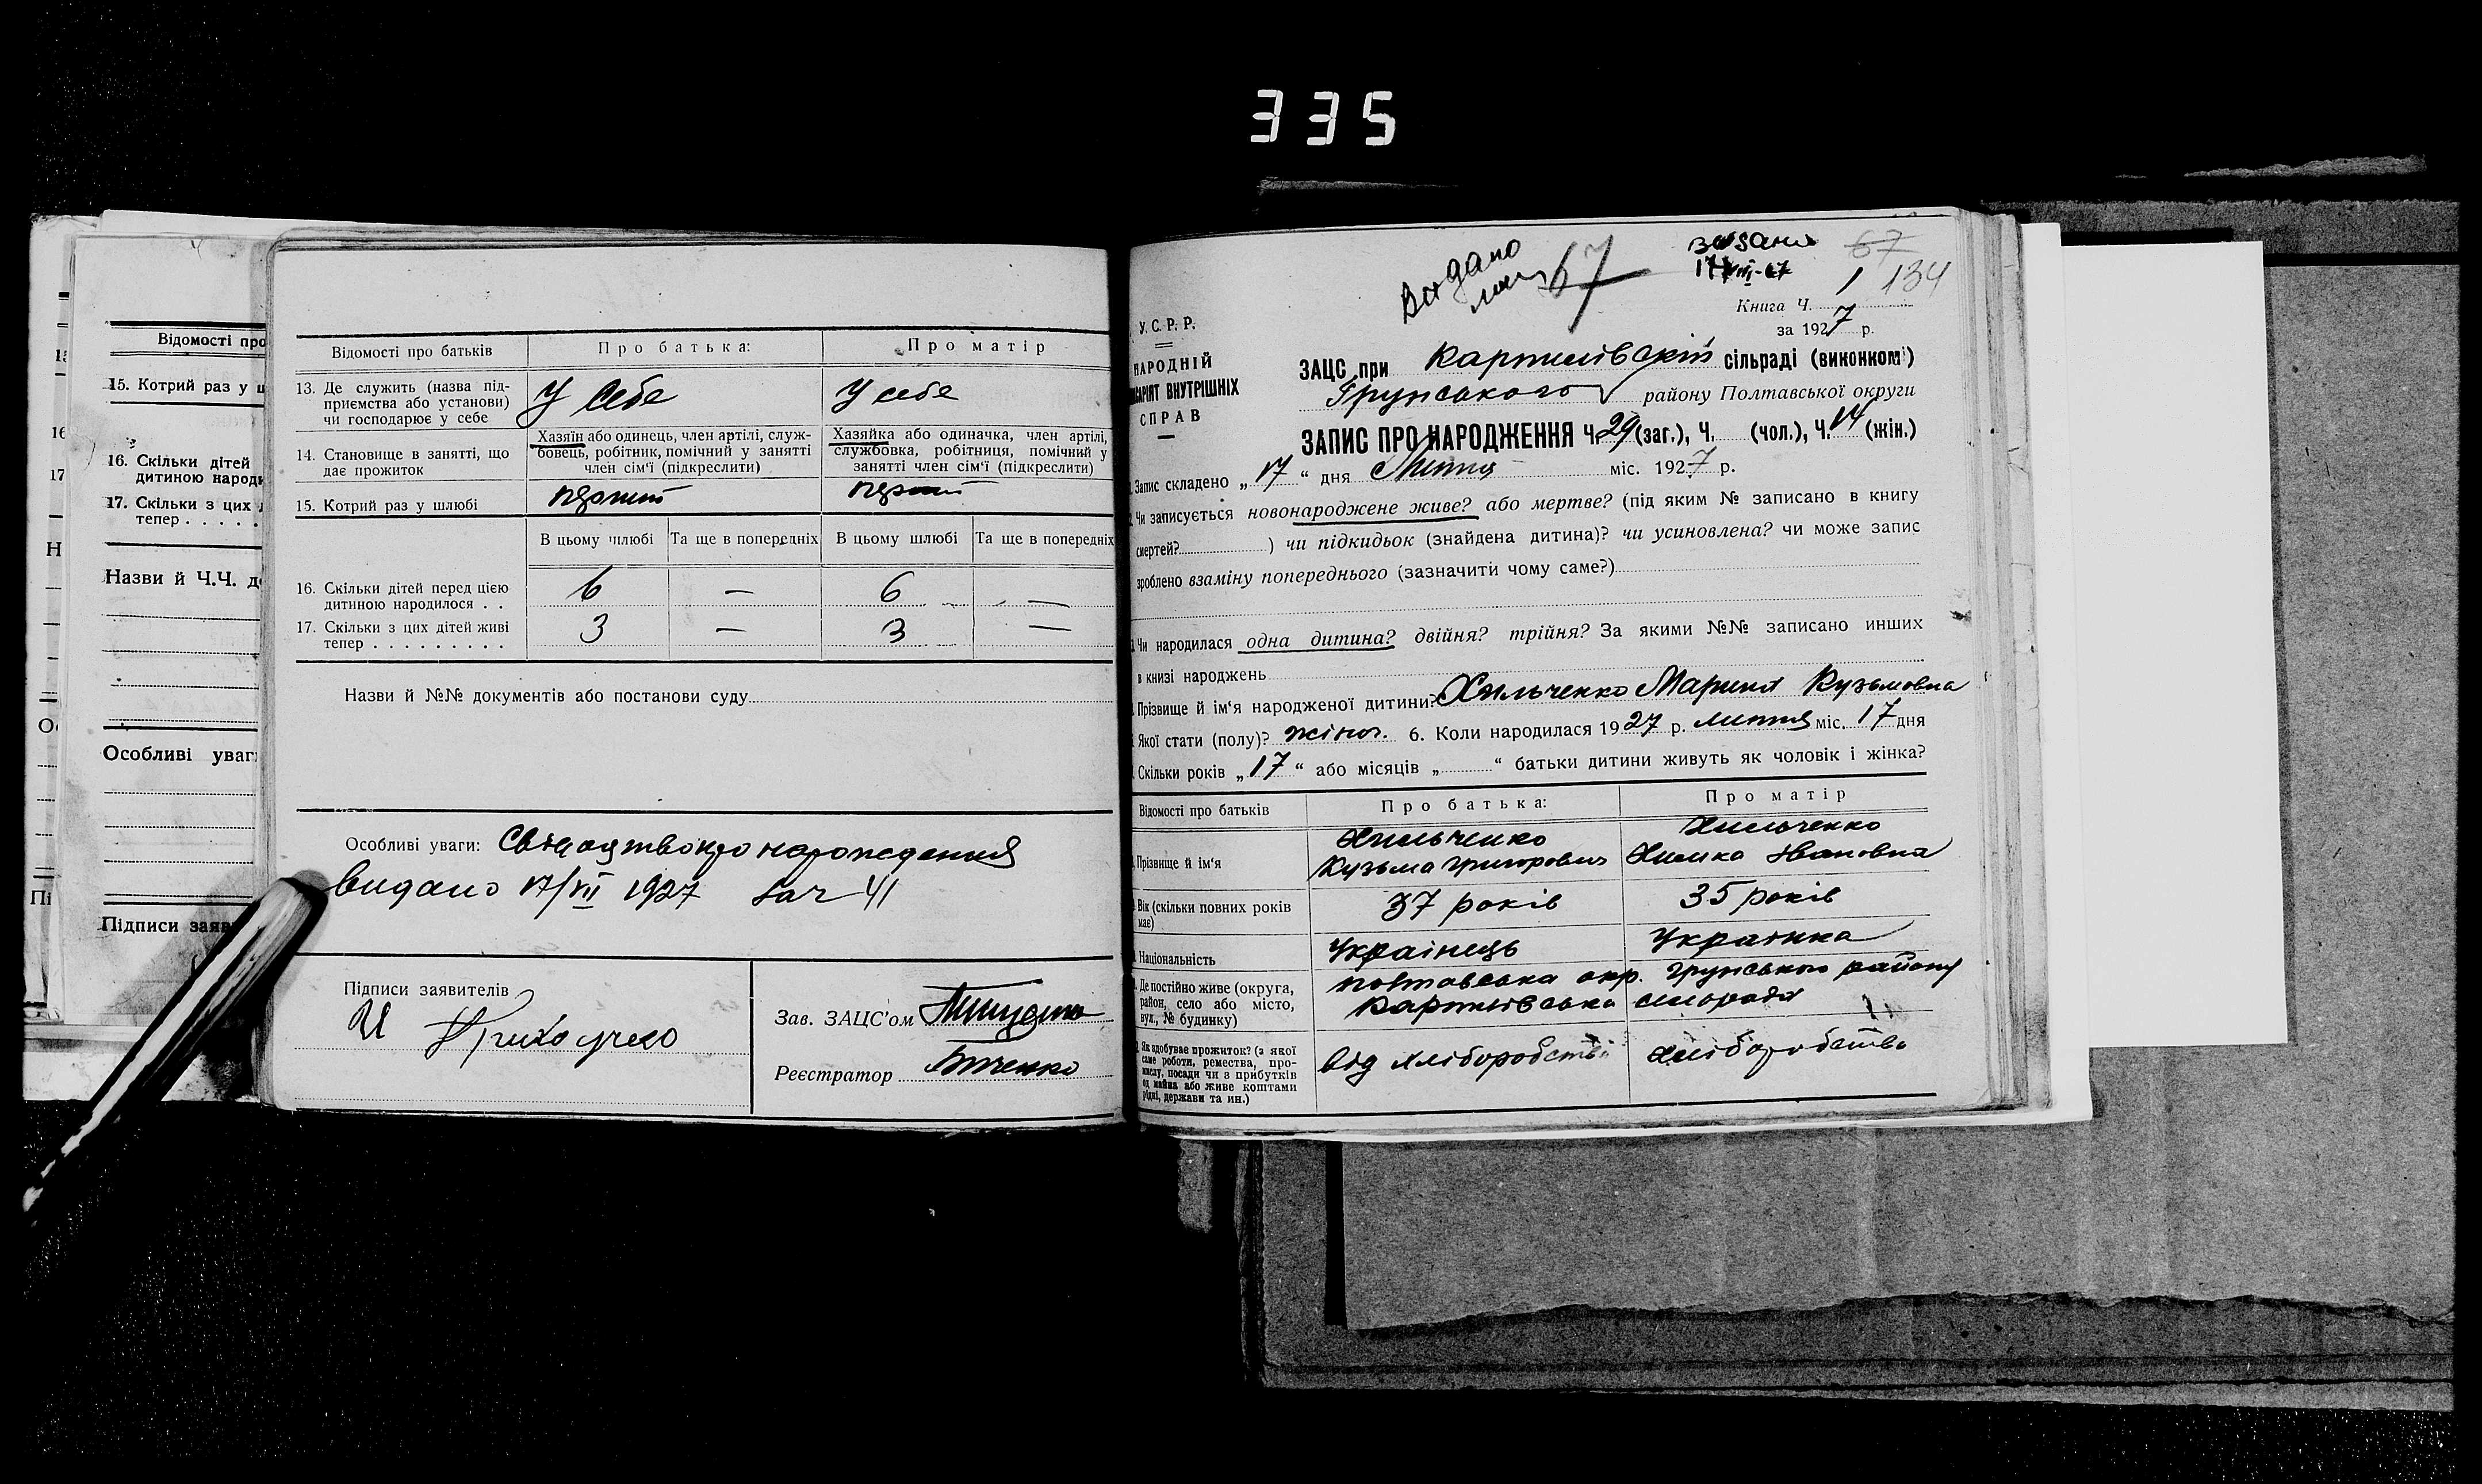 335
Відомості про
15. Котрий раз у ш
16. Скільки дітей
дитиною народи
17. Скільки з цих
тепер . . . . .
Назви й Ч.Ч. д
Особливі уваг
Підписи заяв
Відомості про батьків
Про батька:
Про матір
13. Де служить (назва підприємства або установи) чи господарює у себе
У себе
У себе
14. Становище в занятті, що дає прожиток
Хазяїн або одинець, член артілі, службовець, робітник, помічний у занятті член сім'ї (підкреслити)
Хазяйка або одиначка, член артілі, службовка, робітниця, помічний у занятті член сім'ї (підкреслити)
15. Котрий раз у шлюбі
В цьому шлюбі
Та ще в попередніх
В цьому шлюбі
Та ще в попередніх
16. Скільки дітей перед цією
дитиною народилося . .
6 — 6 —
17. Скільки з цих дітей живі
тепер . . . . . . . . .
3 — 3 —
Назви й №№ документів або постанови суду
Особливі уваги:
видано 17/VII 1927 41
Підписи заявителів
Зав. ЗАЦС'ом
Реєстратор
Видано 67
67
1 134
Книга Ч.
за 1927 р.
У.С.Р.Р.
НАРОДНІЙ
ВНУТРІШНІХ
СПРАВ
ЗАЦС при сільраді (виконком)
Грунського району Полтавської округи
ЗАПИС ПРО НАРОДЖЕННЯ Ч. 29 (заг.), Ч. (чол.), Ч. 14 (жін.)
Запис складено „17“ дня Липня міс. 1927 р.
Чи записується новонароджене живе? або мертве? (під яким № записано в книгу
смертей? ) чи підкидьок (знайдена дитина)? чи усиновлена? чи може запис
зроблено взаміну попереднього (зазначити чому саме?)
Чи народилася одна дитина? двійня? трійня? За якими №№ записано инших
в книзі народжень
Прізвище й ім'я народженої дитини? Хильченко Мария Кузьмовна
Якої стати (полу)? жіноч. 6. Коли народилася 1927 р. липня міс. 17 дня
Скільки років „17“ або місяців „ “ батьки дитини живуть як чоловік і жінка?
Відомості про батьків
Про батька:
Про матір
Прізвище й ім'я
Хильченко
Кузьма Григорович
Хильченко
Ивановна
Вік (скільки повних років має)
37 років
35 років
Національність
Українець
Українка
Де постійно живе (округа,
район, село або місто,
вул., № будинку)
Полтавська окр. Грунського району
сільрада
Як здобуває прожиток? (з якої
саме роботи, ремества, про-
мислу, посади чи з прибутків
од майна або живе коштами
рідні, держави та ин.)
від хліборобства
хліборобства